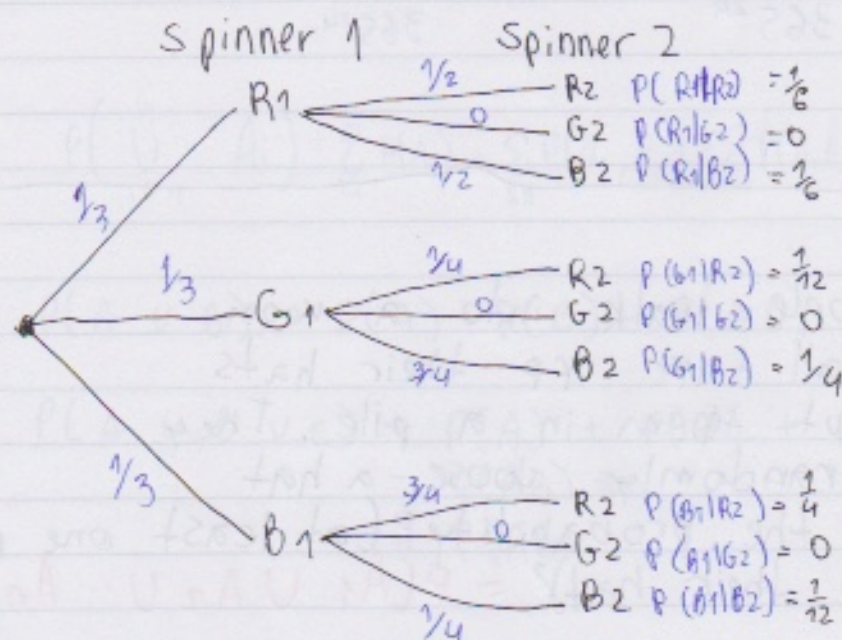 Spinner 1 Spinner 2
1/2 R2 P(R1|R2) = 1/6
R1 0 G2 P(R1|G2) = 0
1/2 B2 P(R1|B2) = 1/6
1/3
1/4 R2 P(G1|R2) = 1/12
1/3 G1 0 G2 P(G1|G2) = 0
3/4 B2 P(G1|B2) = 1/4
1/3
3/4 R2 P(B1|R2) = 1/4
B1 0 G2 P(B1|G2) = 0
1/4 B2 P(B1|B2) = 1/12